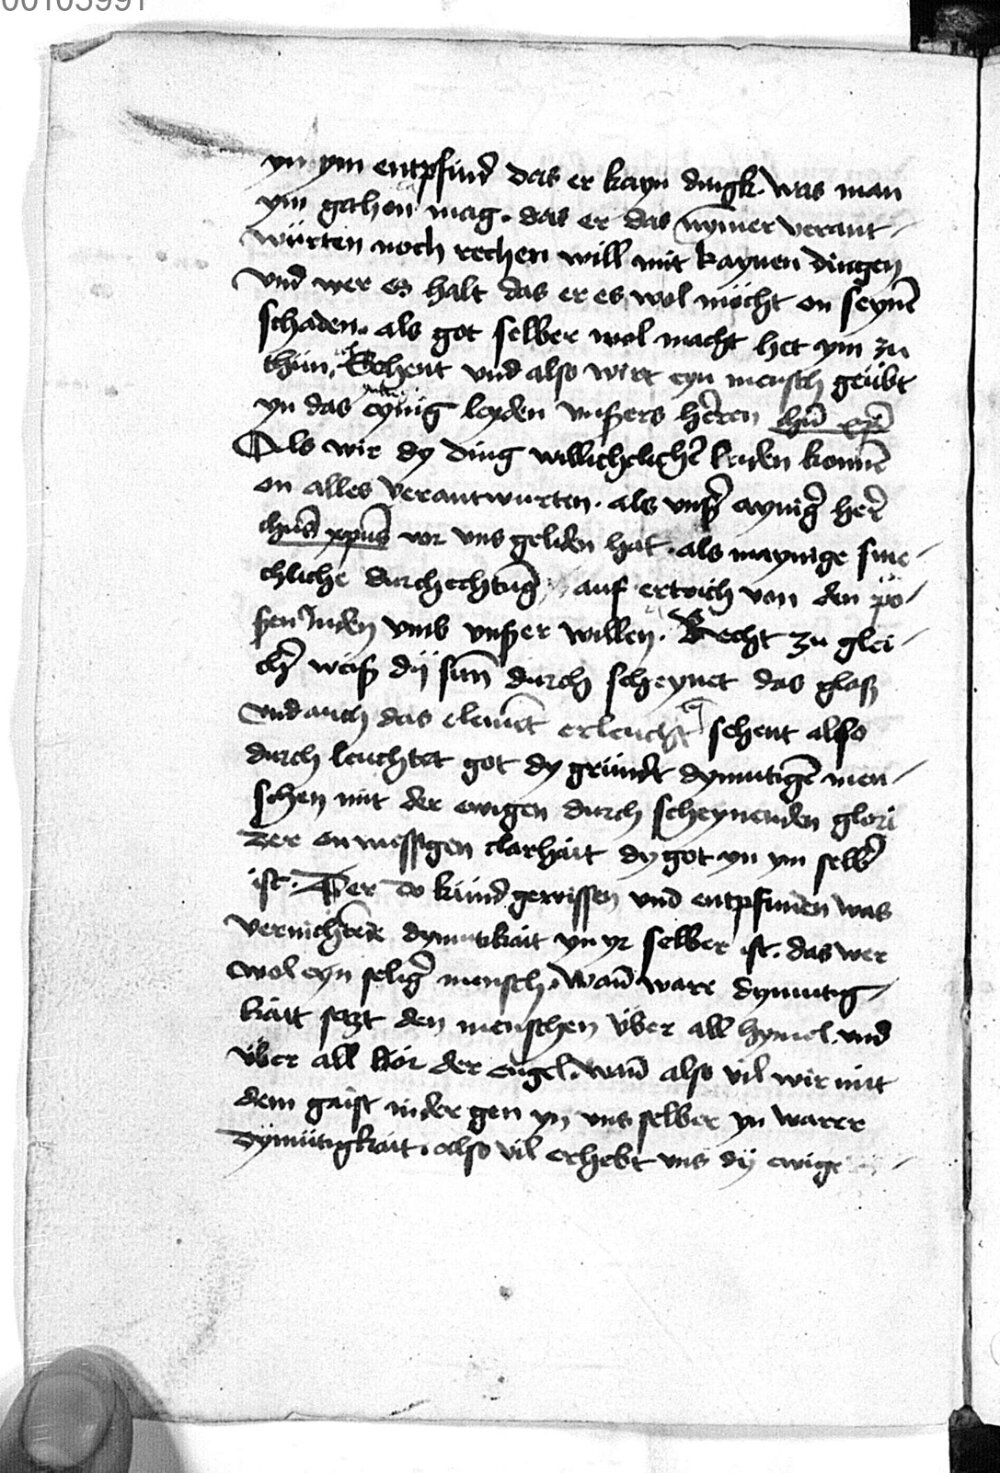 00103991
yn ym entpfind̄ das er kayn dingk was man
ym gethon mag. das er das nȳmer verant-
würten noch rechen will mit kaynen dingen
Vnd wer es halt das er es wol möcht on seynē
schaden. als got selber wol macht het ym zu
thün. Sehent vnd also wirt eyn mensch geübt
yn das eynig leyden vnßers herren ihū xpī
Als wir dy ding willichlichē leyden konnē
on alles verantwurten. als vnsʾ aynigʾ herʾ
ihūs xpūs vor vns geliden hat. als maynige sme-
chliche durchechtūg auf ertrich von den pö-
ßen Juden vmb vnßer willen. Recht zu glei-
chʾ weiß dÿ sūn durch scheynet das glaß
vnd auch das elemēt erleucht sehent also
durch leuchtet got dy gründt dymutigē men-
schen mit der ewigen durch scheynenden glori
zer on messigen clarhait dy got yn ym selbʾ
ist. Der do künd gewissen vnd entpfinden was
vernichtende dymutikait yn yr selber ist. das wer
wol eyn seligʾ mensch. Wan̄ ware dymutig-
kait setzt den menschen über all hymel. vnd
über all kör der engel. wan̄ also vil wir mit
dem gaist nider gen yn vns selber yn warer
dÿmütigkait. also vil erhebt vns dÿ ewige